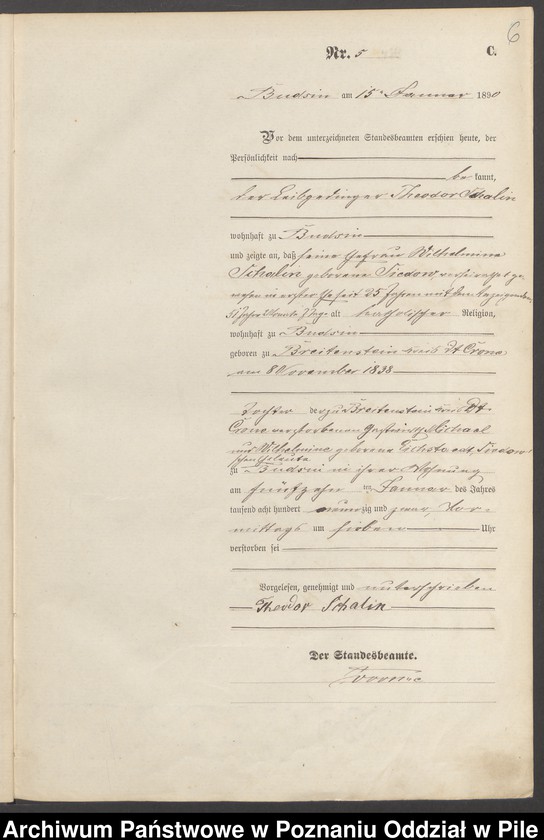 6
Nr. 5 C.
Budsin am 15ᵗ Januar 1890
Vor dem unterzeichneten Standesbeamten erschien heute, der
Persönlichkeit nach
be kannt,
der Leibgedinger Theodor Schalin
wohnhaft zu Budsin
und zeigte an, daß seine Ehefrau Wilhelmine
Schalin geborene Tiedow, verheirathet ge-
wesen in erster Ehe seit 25 Jahren mit dem Anzeigenden,
51 Jahre alt katholischer Religion,
wohnhaft zu Budsin
geboren zu Breitenstein Kreis Dt Crone
am 8 November 1838
Tochter der zu Breitenstein Kreis Dt-
Crone verstorbenen Michael
und Wilhelmine geborene Tiedow
schen Eheleute
zu Budsin in ihrer Wohnung
am fünfzehn ten Januar des Jahres
tausend acht hundert neunzig und zwar, Vor-
mittags um sieben Uhr
verstorben sei
Vorgelesen, genehmigt und unterschrieben
Theodor Schalin
Der Standesbeamte.
Archiwum Państwowe w Poznaniu Oddział w Pile